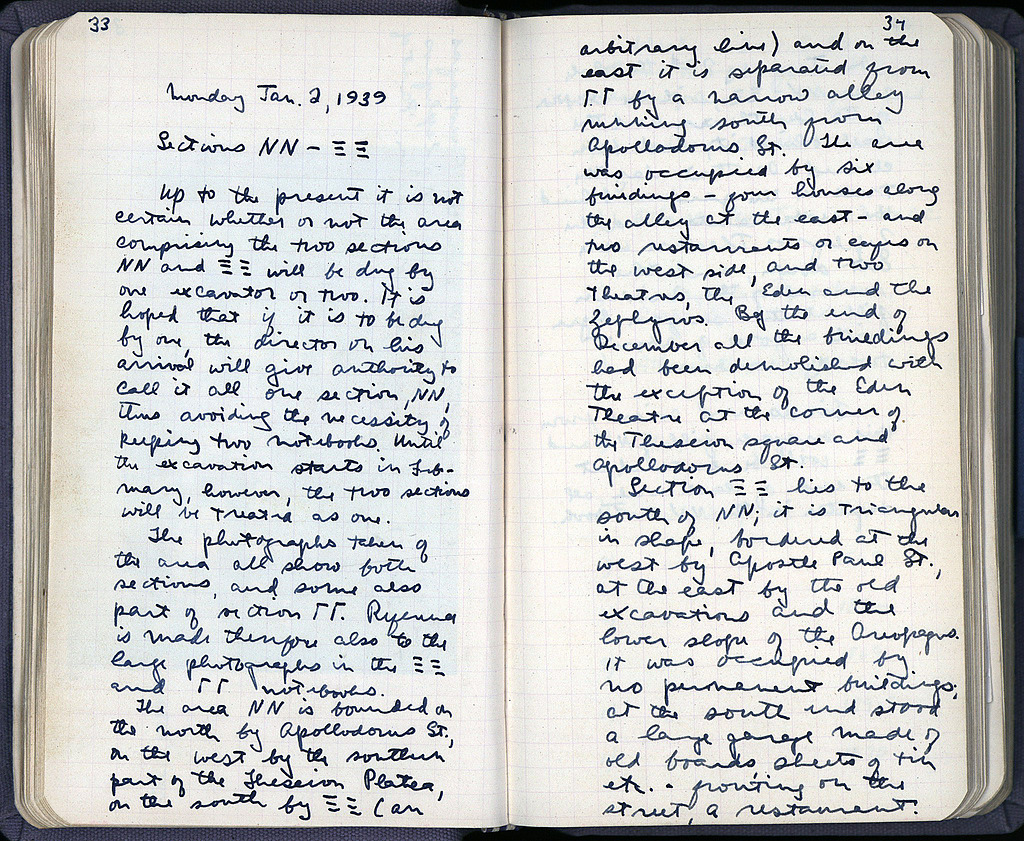 33
Monday Jan. 2, 1939
Sections NN – ΞΞ
Up to the present it is not
certain whether or not the area
comprising the two sections
NN and ΞΞ will be dug by
one excavator or two. It is
hoped that if it is to be dug
by one, the director on his
arrival will give authority to
call it all one section, NN,
thus avoiding the necessity of
keeping two notebooks. Until
the excavation starts in Feb-
ruary, however, the two sections
will be treated as one.
The photographs taken of
the area all show both
sections, and some also
part of section ΓΓ. Reference
is made therefore also to the
large photographs in the ΞΞ
and ΓΓ notebooks.
The area NN is bounded on
the north by Apollodorus St.,
on the west by the southern
part of the Theseion Platea,
on the south by ΞΞ (an
34
arbitrary line) and on the
east it is separated from
ΓΓ by a narrow alley
running south from
Apollodorus St. The area
was occupied by six
buildings – four houses along
the alley at the east – and
two restaurants or cafes on
the west side, and two
theatres, the Eden and the
Zephyros. By the end of
December all the buildings
had been demolished with
the exception of the Eden
Theatre at the corner of
the Theseion square and
Apollodorus St.
Section ΞΞ lies to the
south of NN; it is triangular
in shape, bordered at the
west by Apostle Paul St.,
at the east by the old
excavations and the
lower slope of the Areopagus.
It was occupied by
no permanent buildings;
at the south end stood
a large garage made of
old boards sheets of tin
etc. - fronting on the
street, a restaurant.